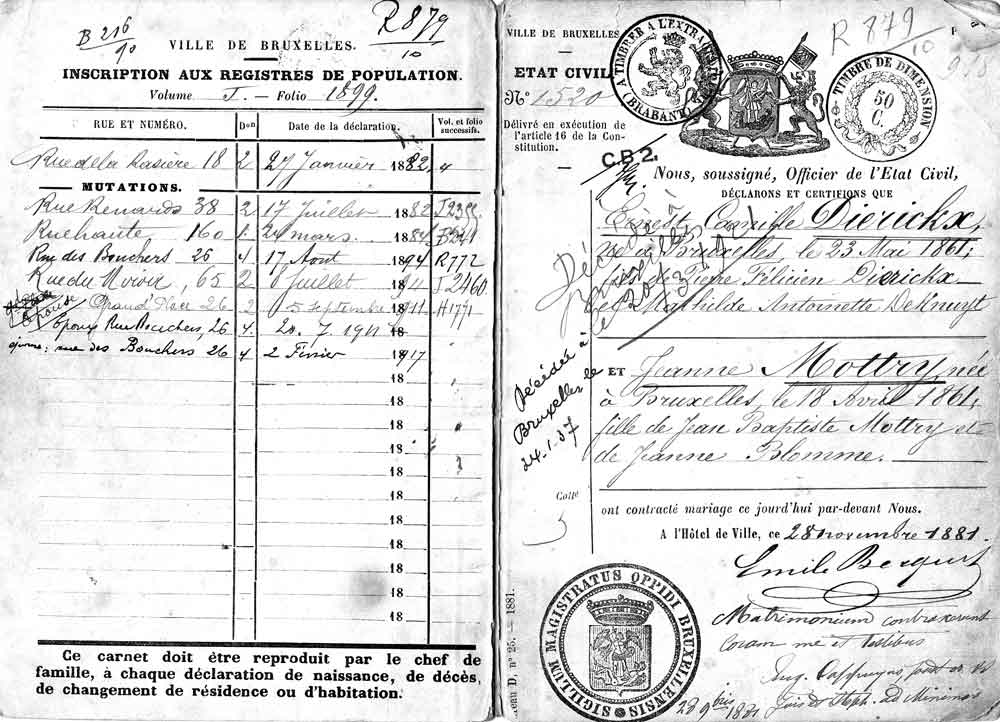 B 216
10
R 879
10
VILLE DE BRUXELLES.
INSCRIPTION AUX REGISTRES DE POPULATION.
Volume I. — Folio 1899.
RUE ET NUMÉRO. Don Date de la déclaration. Vol. et folio successifs.
Rue de la Rasière 18 2 27 Janvier 1882 4
MUTATIONS.
Rue Renards 38 2 17 Juillet 1882
Rue haute 160 1 24 mars 1884
Rue des Bouchers 26 4 17 Aout 1894 R772
Rue du Miroir, 65 2 8 Juillet 1911 J2460
Grand' Place 26 2 5 Septembre 1911 H1771
Epouse Rue Bouchers, 26 4 20. 7 191
rue des Bouchers 26 4 2 Février 1917
18
18
18
18
18
18
18
18
18
18
18
Ce carnet doit être reproduit par le chef de
famille, à chaque déclaration de naissance, de décès,
de changement de résidence ou d'habitation.
VILLE DE BRUXELLES
ETAT CIVIL
No 1520
Délivré en exécution de
l'article 16 de la Con-
stitution.
A TIMBRER A L'EXTRAORDINAIRE
(BRABANT)
R 879
10
918
TIMBRE DE DIMENSION
50
C.
C.B 2.
Nous, soussigné, Officier de l'Etat Civil,
DÉCLARONS ET CERTIFIONS QUE
Ernest Camille Dierickx,
né à Bruxelles, le 23 Mai 1861;
fils de Pierre Félicien Dierickx
et Mathilde Antoinette
Décédé à
Bruxelles
le 20
ET Jeanne Mottry, née
à Bruxelles, le 18 Avril 1861;
fille de Jean Baptiste Mottry et
de Jeanne Blomme.
Décédée à
Bruxelles le
24.1.37
Coût
ont contracté mariage ce jourd'hui par-devant Nous.
A l'Hôtel de Ville, ce 28 novembre 1881.
Emile Becquet
SIGILLUM MAGISTRATUS OPPIDI BRUXELLENSIS
eau D, n° 25. — 1881.
Matrimonium contraxerunt
coram me et testibus
28 9bris 1881